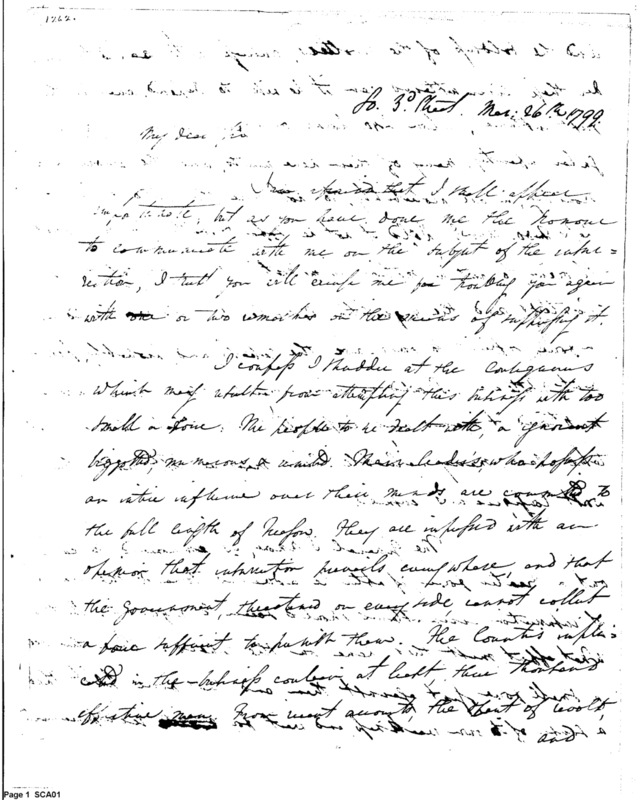 1262.
So. 3d. Street Mar: 26th 1799
My dear Sir
I am afraid that I shall appear
importunate; but as you have done me the honour
to communicate with me on the subject of the insur=
rection, I trust you will excuse me for troubling you again
with one or two remarks on the means of suppressing it.
I confess I shudder at the consequences
which may result from attempting this business with too
small a force. The people to be dealt with, are ignorant
bigotted, numerous, & united. Their leaders, who possess
an entire influence over their minds are committed to
the full length of Treason. They are impressed with an
opinion that insurrection prevails every where, and that
the government, threatened on every side, cannot collect
a force sufficient to punish them. The Counties impli=
cated in the business contain at least three thousand
effective men. From recent accounts, the spirit of revolt,
and
Page 1 SCA01